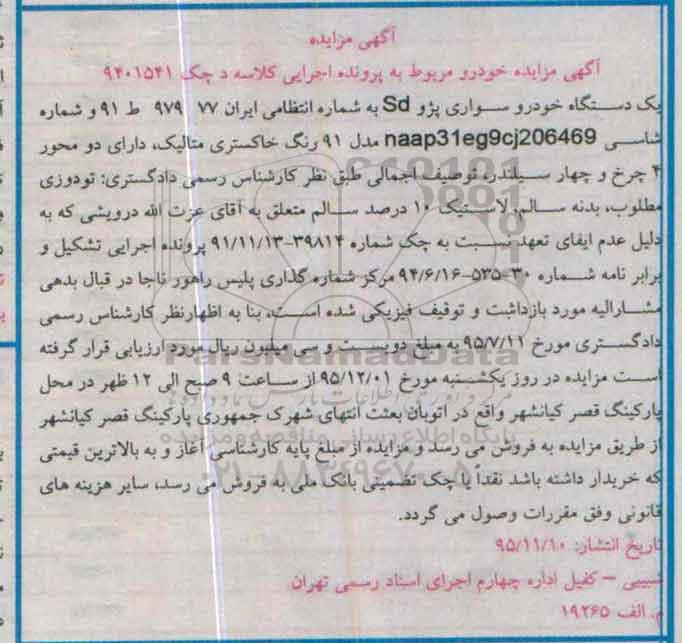 آگهی مزایده
آگهی مزایده خودرو مربوط به پرونده اجرایی کلاسه د چک ۹۴۰۱۵۴۱
یک دستگاه خودرو سواری پژو Sd به شماره انتظامی ایران ۷۷ ۹۷۹ ط ۹۱ و شماره
شاسی naap31eg9cj206469 مدل ۹۱ رنگ خاکستری متالیک، دارای دو محور
۴ چرخ و چهار سیلندر، توصیف اجمالی طبق نظر کارشناس رسمی دادگستری: تودوزی
مطلوب، بدنه سالم، لاستیک ۱۰ درصد سالم متعلق به آقای عزت الله درویشی که به
دلیل عدم ایفای تعهد نسبت به چک شماره ۳۹۸۱۴-۹۱/۱۱/۱۳ پرونده اجرایی تشکیل و
برابر نامه شماره ۳۰-۵۳۵-۹۴/۶/۱۶ مرکز شماره گذاری پلیس راهور ناجا در قبال بدهی
مشارالیه مورد بازداشت و توقیف فیزیکی شده است، بنا به اظهارنظر کارشناس رسمی
دادگستری مورخ ۹۵/۷/۱۱ به مبلغ دویست و سی میلیون ریال مورد ارزیابی قرار گرفته
است مزایده در روز یکشنبه مورخ ۹۵/۱۲/۰۱ از ساعت ۹ صبح الی ۱۲ ظهر در محل
پارکینگ قصر کیانشهر واقع در اتوبان بعثت انتهای شهرک جمهوری پارکینگ قصر کیانشهر
از طریق مزایده به فروش می رسد و مزایده از مبلغ پایه کارشناسی آغاز و به بالاترین قیمتی
که خریدار داشته باشد نقداً یا چک تضمینی بانک ملی به فروش می رسد، سایر هزینه های
قانونی وفق مقررات وصول می گردد.
تاریخ انتشار: ۹۵/۱۱/۱۰
شبیبی - کفیل اداره چهارم اجرای اسناد رسمی تهران
م. الف ۱۹۲۶۵
ParsNamadData
پایگاه اطلاع رسانی مناقصه و مزایده